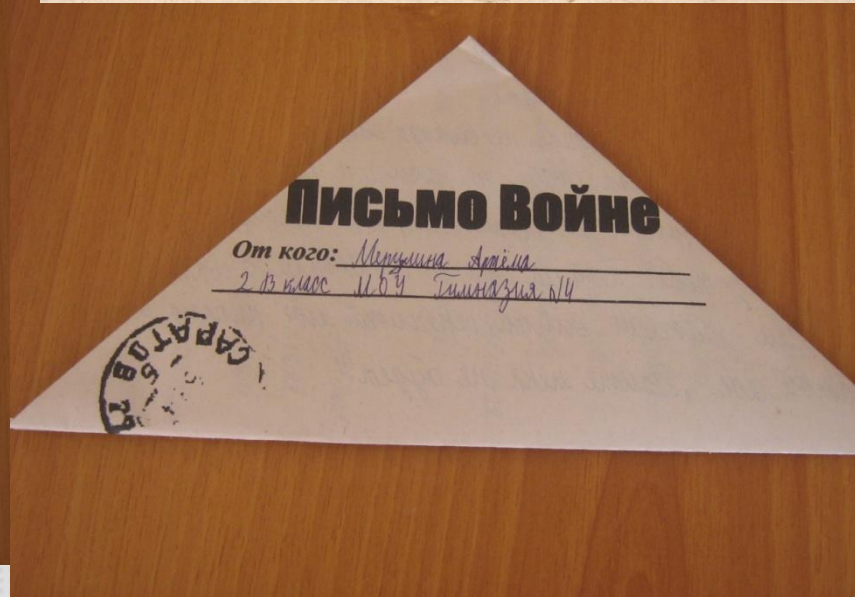 Письмо Войне
От кого: Мерзлина Артёма
2 В класс МОУ Гимназия №4
САРАТОВ